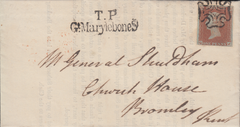 T.P
Gt Marylebone S
Mr General Studdham
Church House
Bromley
Kent